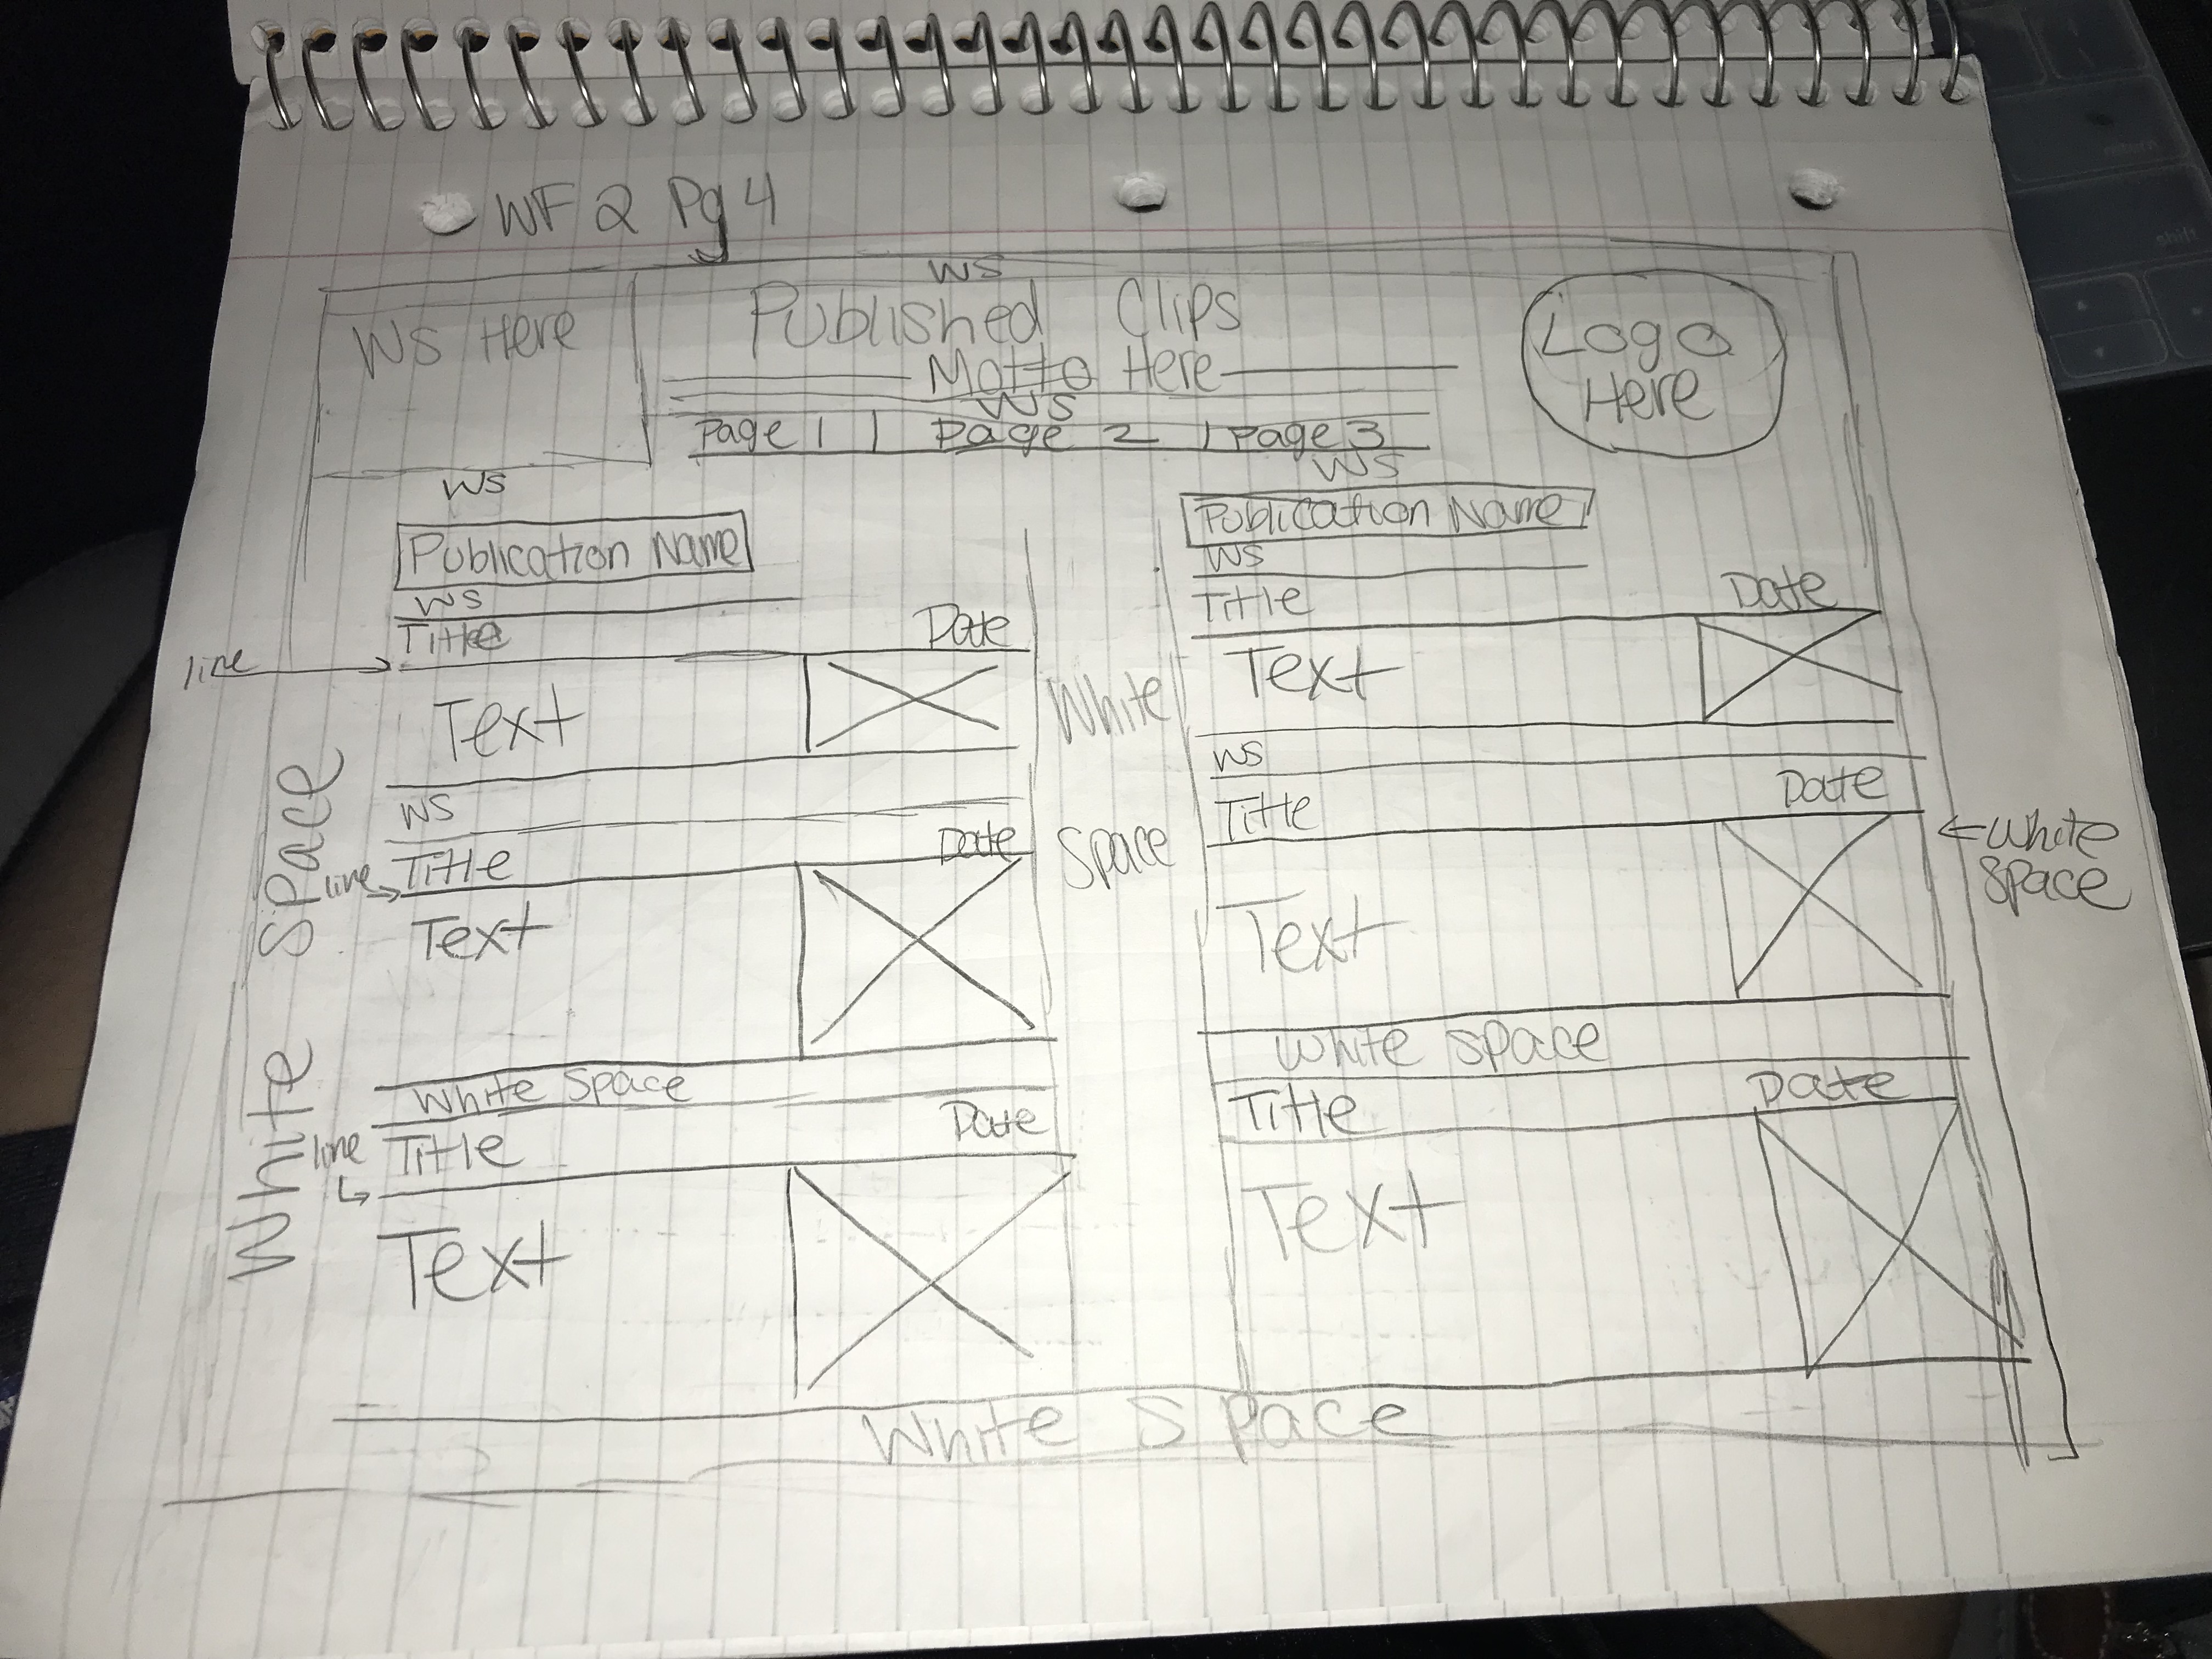 WF 2 Pg 4
WS
WS Here
Published Clips
Motto Here
WS
Page 1 | Page 2 | Page 3
Logo Here
WS
Publication Name
WS
Title Date
line
Text
WS
Title Date
line
Text
White Space
Title Date
line
Text
White Space
White Space
WS
Publication Name
WS
Title Date
Text
WS
Title Date
Text
White Space
Title Date
Text
White Space
White Space